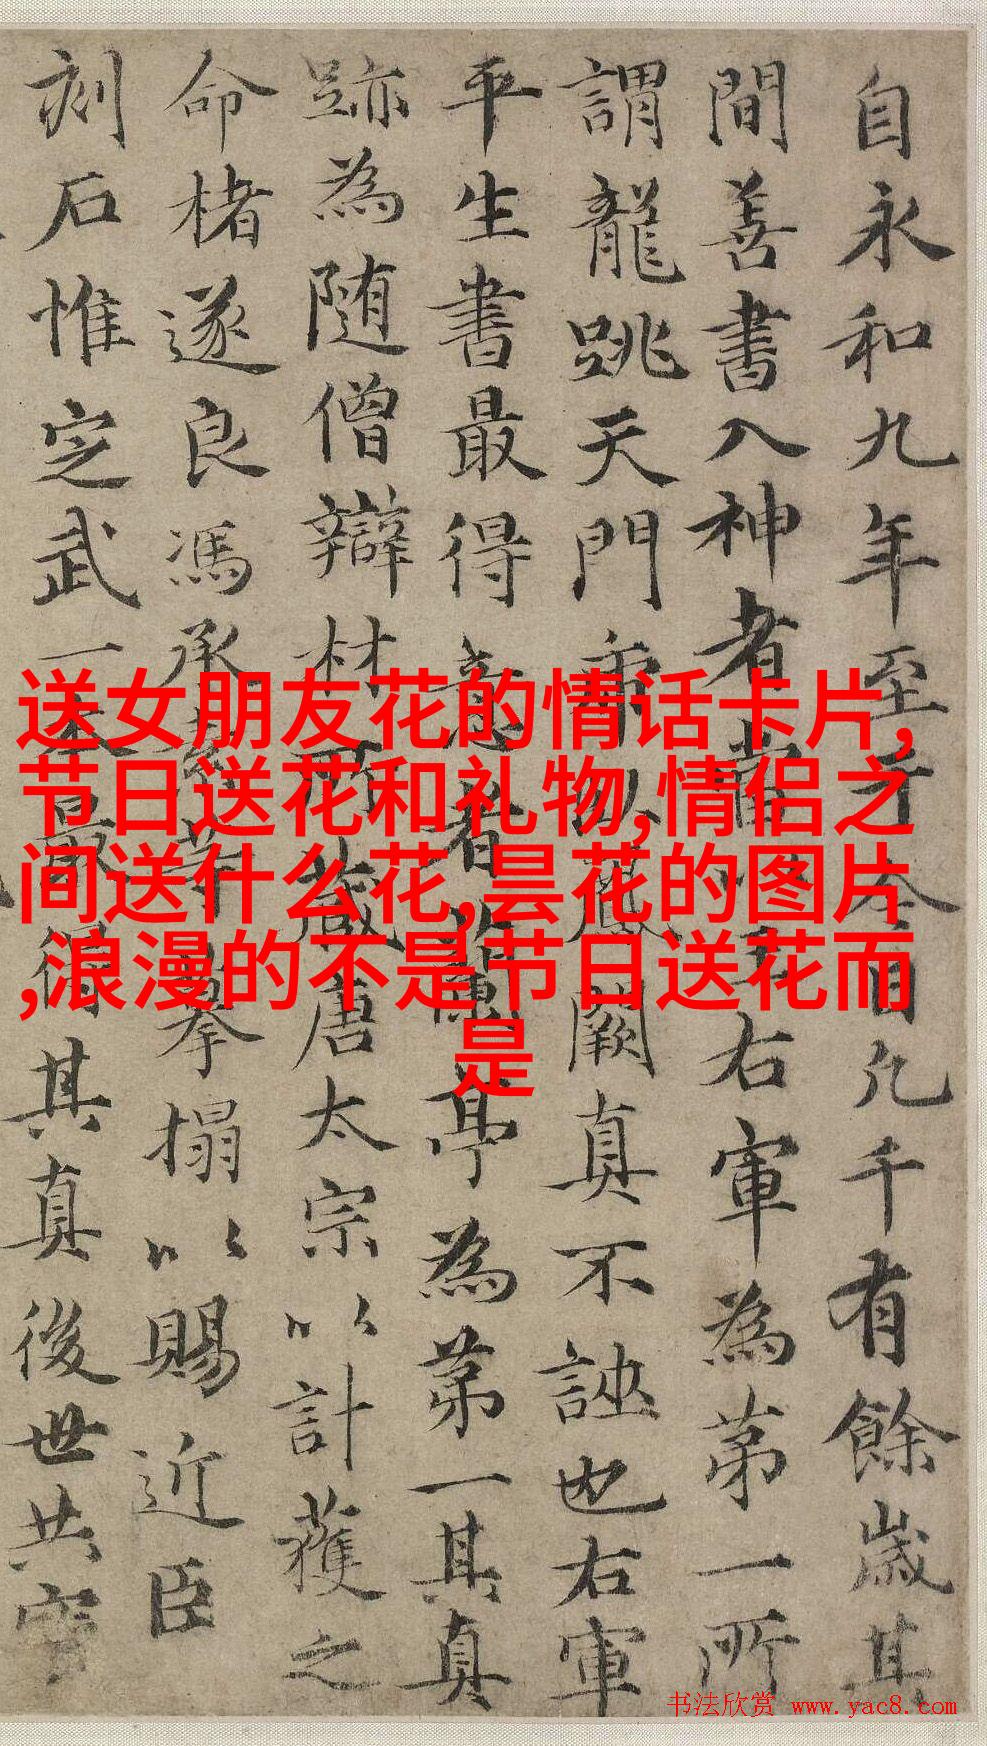 自永和九年至于今日凡千有餘歲其
間善書入神者當右軍為第一所
謂龍跳天門鳳闕真不誣也右軍
平生書最得意者蘭亭為第一其真
跡為随僧辯材所藏唐太宗以計獲之
命楮遂良馮承素等摹搨以賜近臣
刻石惟定武一本最得其真後世共寳
送女朋友花的情话卡片,
节日送花和礼物,情侣之
间送什么花,昙花的图片
,浪漫的不是节日送花而
是
书法欣赏 www.yac8.com